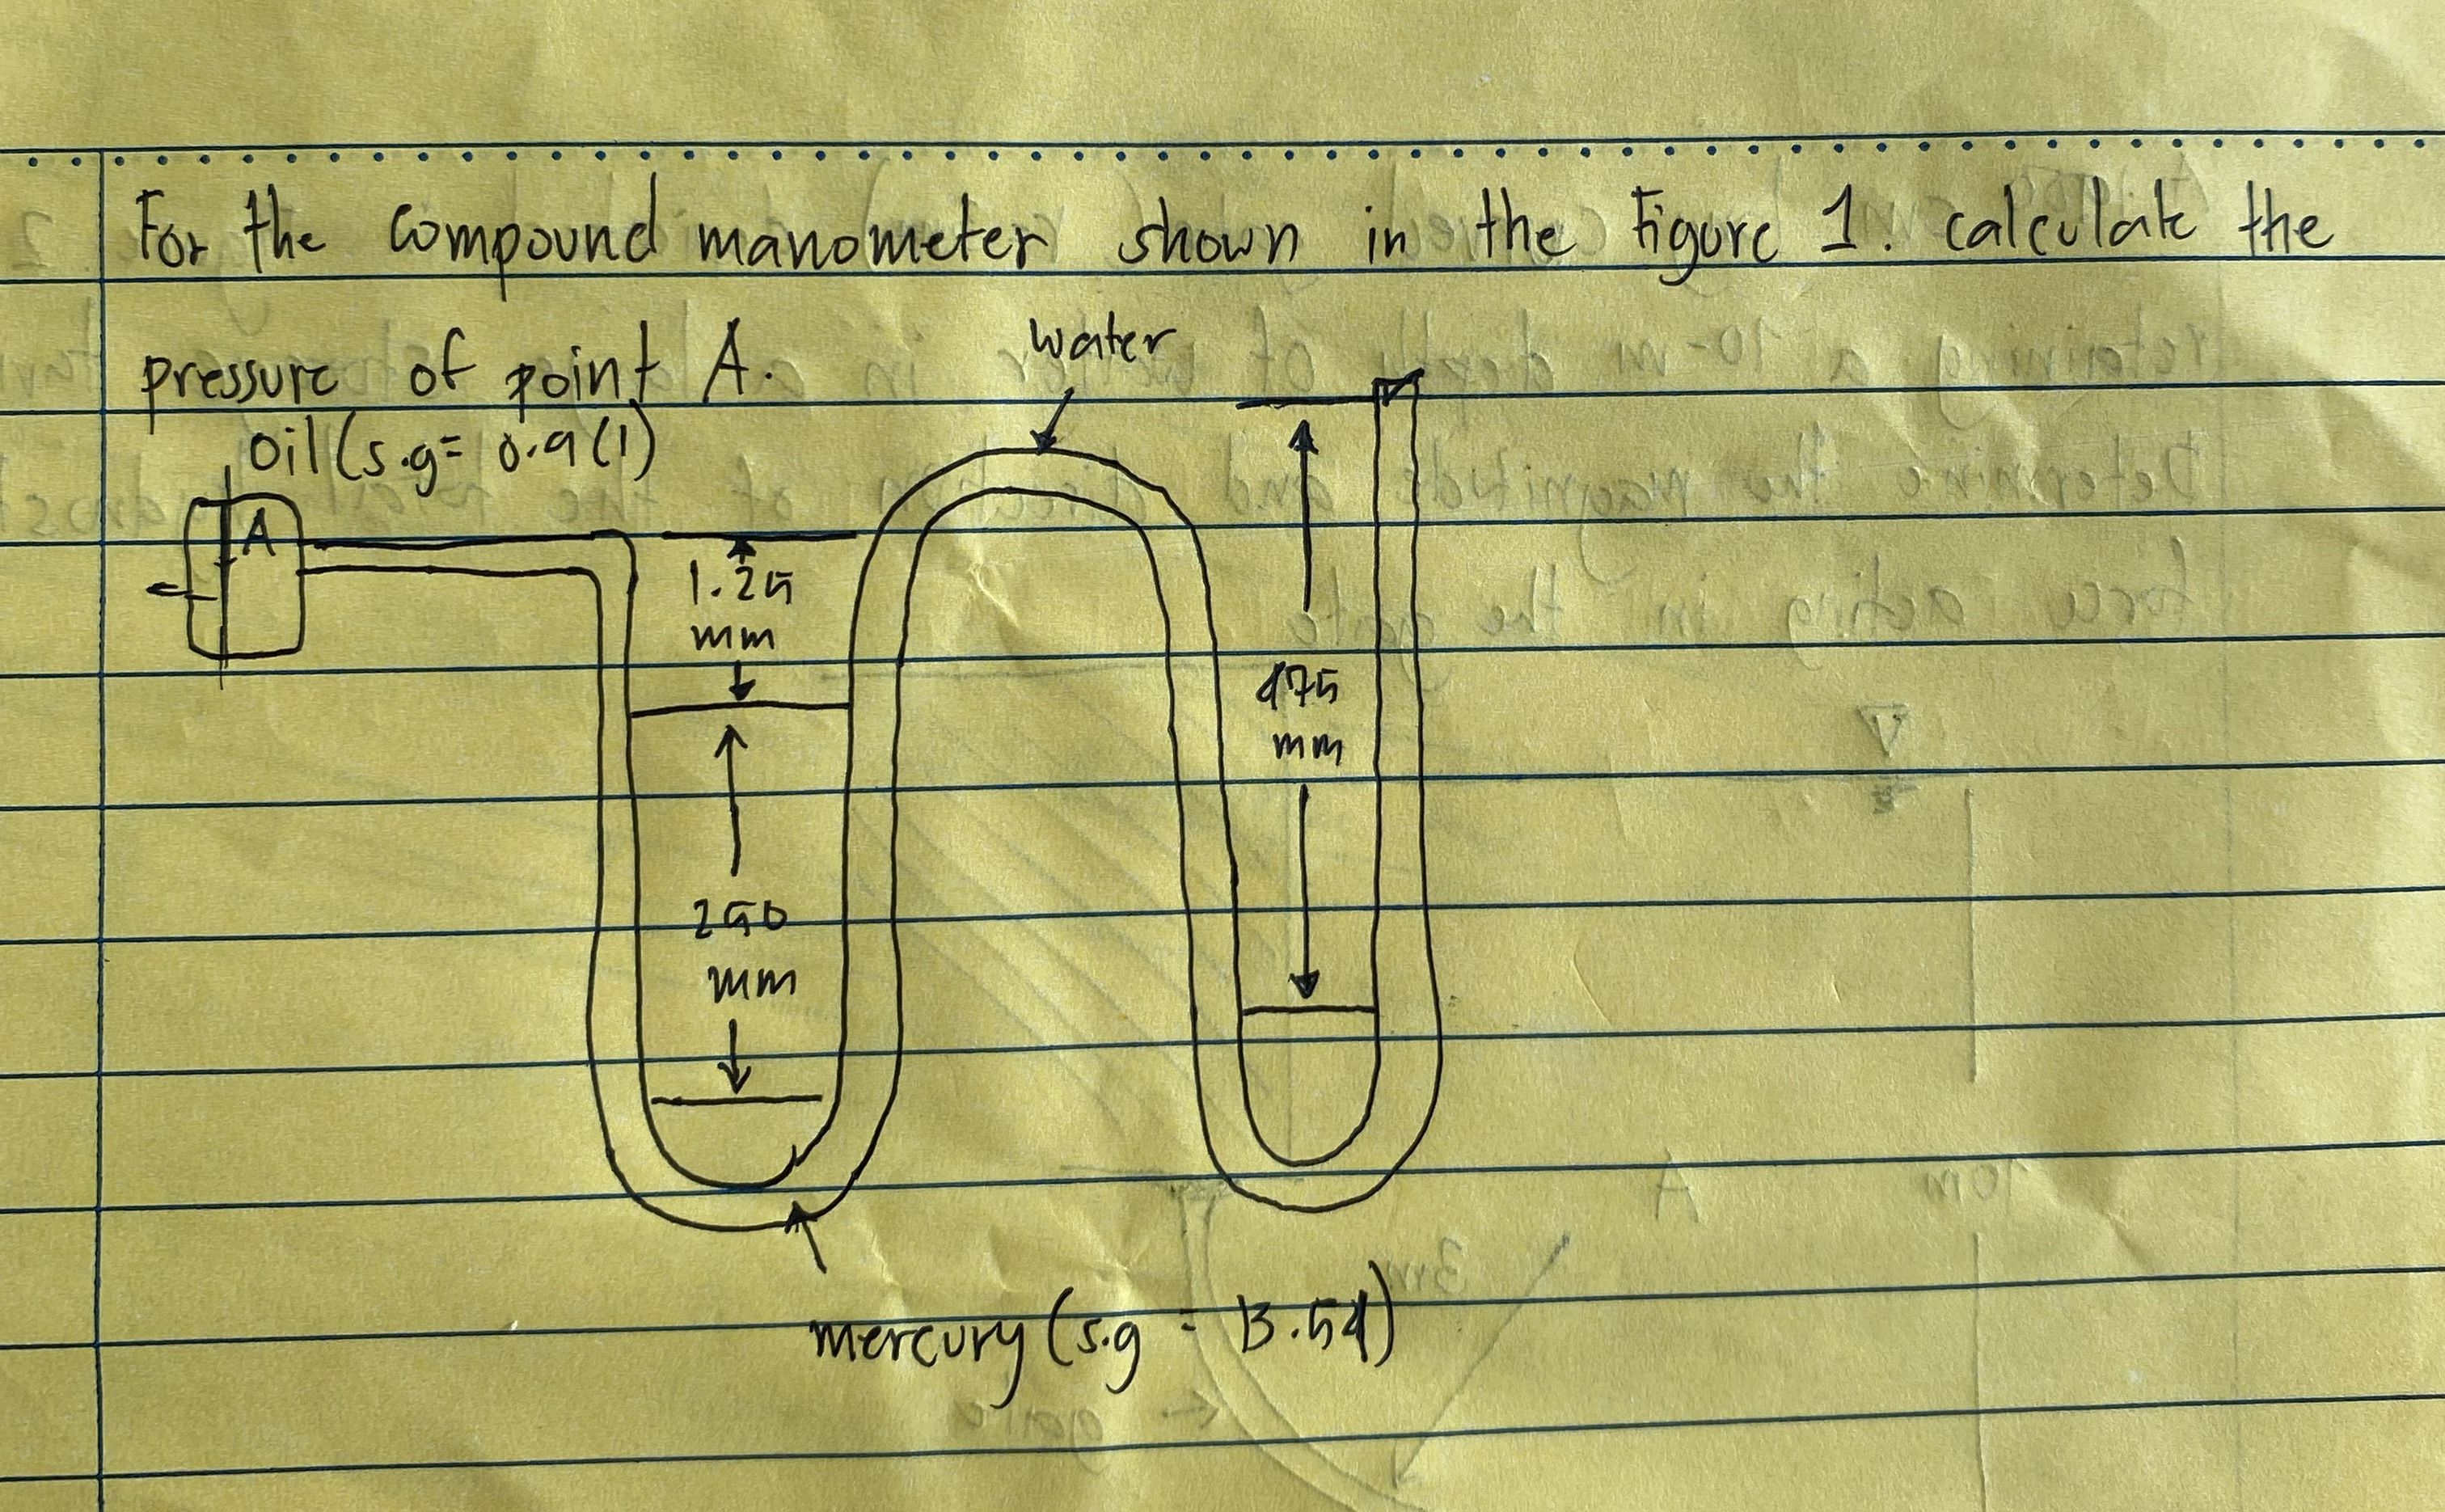 For the compound manometer shown in the Figure 1. calculate the
pressure of point A.
water
oil (s.g = 0.9(1)
A
1.25
mm
475
mm
250
mm
mercury (s.g = 13.54)